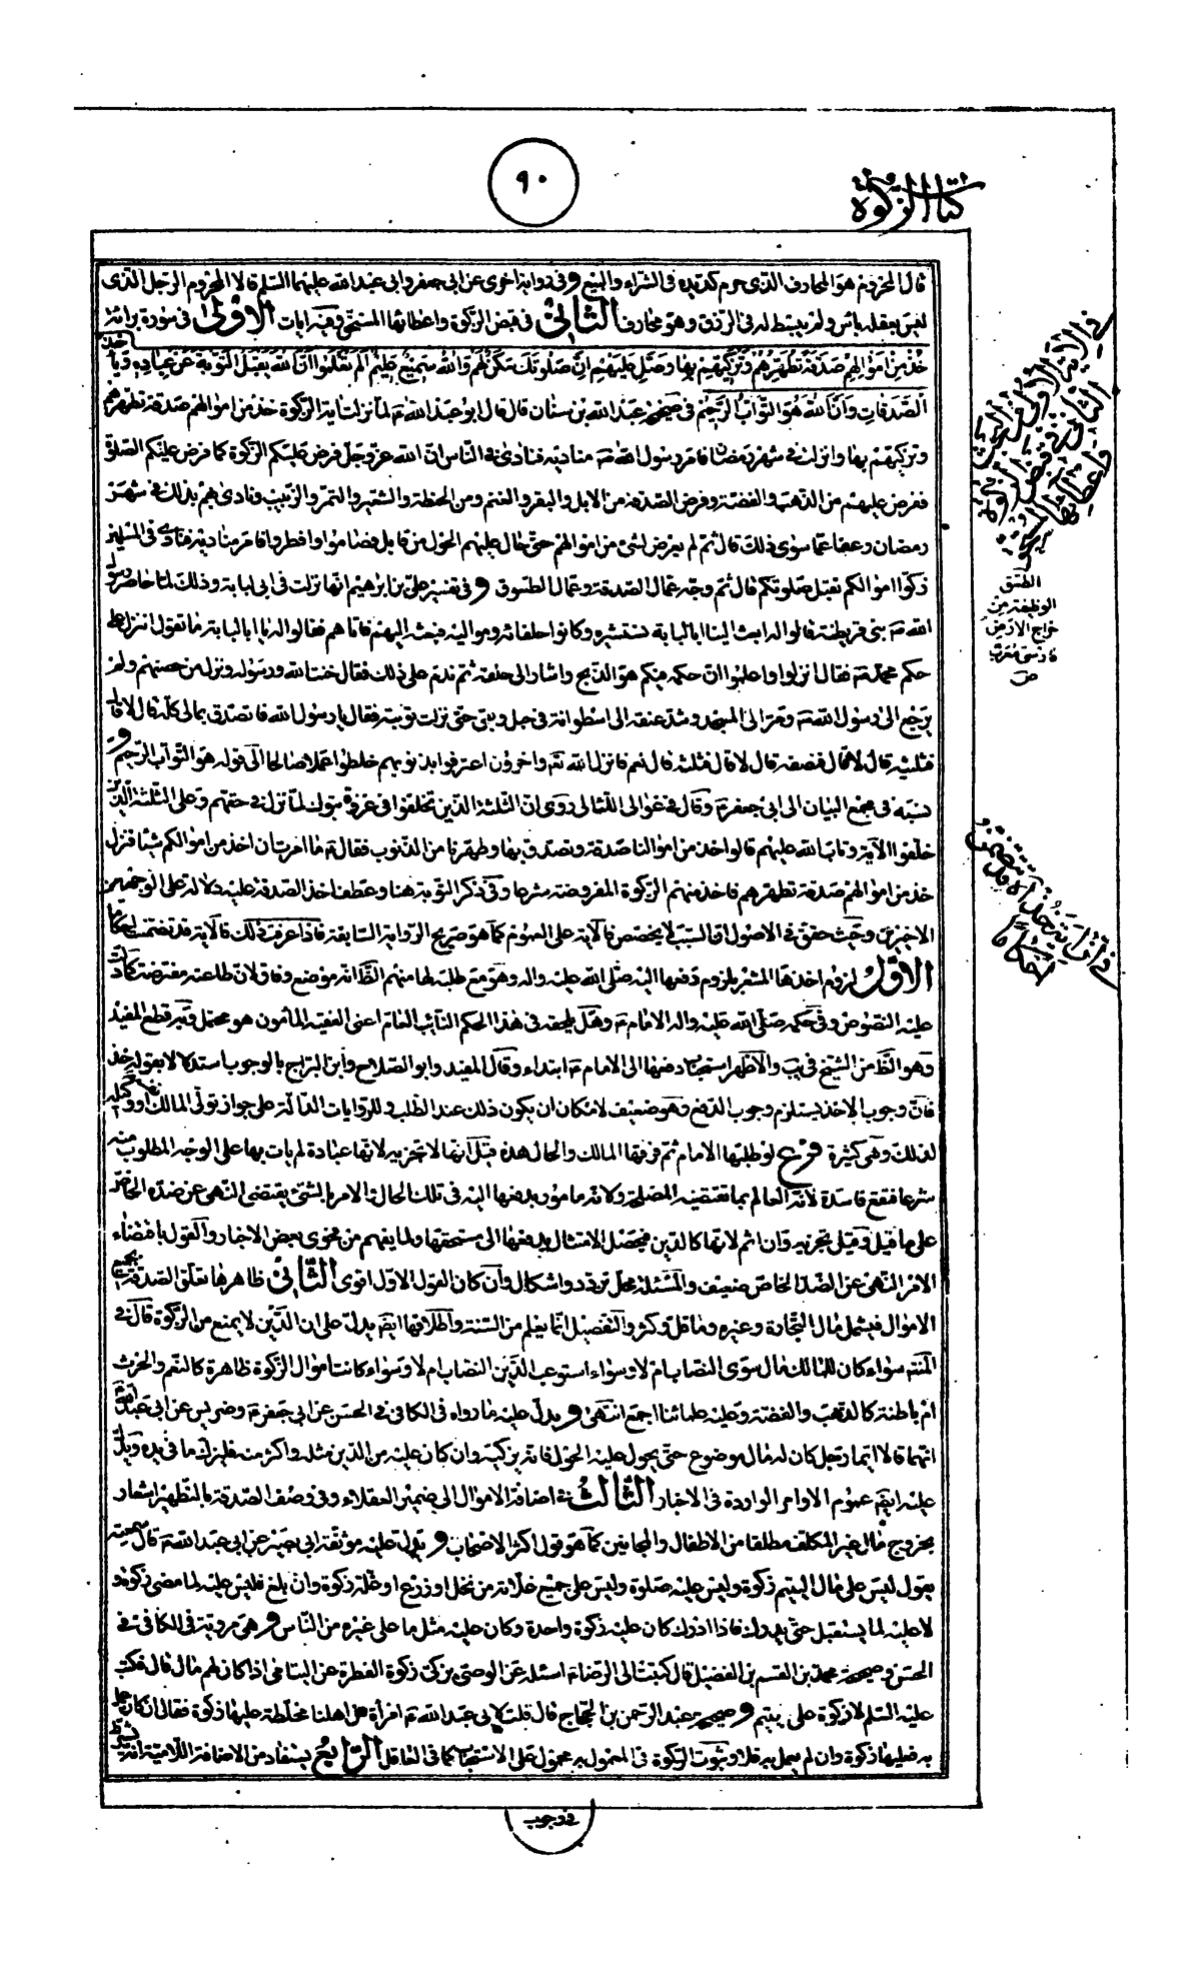 ٩٠
كتاب الزكوة
قال المحروم هو المحارف الذى حرم كد يده فى الشراء والبيع وفى رواية اخرى عن ابى جعفر وابى عبد الله عليهما السلم قالا المحروم الرجل الذى
ليس بعقله باس ولم يبسط له فى الرزق وهو محارف الثانى فى قبض الزكوة واعطائها المستحق وفيه ايات الاولى فى سورة براءة
خذ من اموالهم صدقة تطهرهم وتزكيهم بها وصل عليهم ان صلوتك سكن لهم والله سميع عليم الم تعلموا ان الله يقبل التوبة عن عباده وياخذ
الصدقات وان الله هو التواب الرحيم فى صحيحة عبد الله بن سنان قال قال ابو عبد الله ع لما نزلت اية الزكوة خذ من اموالهم صدقة تطهرهم
وتزكيهم بها وانزلت فى شهر رمضان فامر رسول الله ص مناديه فنادى فى الناس ان الله عز وجل فرض عليكم الزكوة كما فرض عليكم الصلوة
ففرض عليهم من الذهب والفضة وفرض الصدقة من الابل والبقر والغنم ومن الحنطة والشعير والتمر والزبيب ونادى بهم بذلك فى شهر
رمضان وعفا عما سوى ذلك قال ثم لم يعرض لشئ من اموالهم حتى حال عليهم الحول من قابل فصاموا وافطروا فامر مناديه فنادى فى المسلمين
زكوا اموالكم تقبل صلوتكم قال ثم وجه عمال الصدقة وعمال الطسوق وفى تفسير على بن ابراهيم انها نزلت فى ابى لبابة وذلك لما حاصر رسول
الله ص بنى قريظة قالوا له ابعث الينا ابا لبابة نستشيره وكانوا حلفائه ومواليه فبعثه اليهم فاتاهم فقالوا له يا ابا لبابة ما تقول اننزل على
حكم محمد ص فقال انزلوا واعلموا ان حكمه فيكم هو الذبح واشار الى حلقه ثم ندم على ذلك فقال خنت الله ورسوله ونزل من حصنهم ولم
يرجع الى رسول الله ص ومر الى المسجد وشد عنقه الى اسطوانة فى حبل وبقى حتى نزلت توبته فقال يا رسول الله فاتصدق بمالى كله قال لا قال
فثلثيه قال لا قال فنصفه قال لا قال فثلثه قال نعم فانزل الله تع واخرون اعترفوا بذنوبهم خلطوا عملا صالحا الى قوله هو التواب الرحيم و
نسبه فى مجمع البيان الى ابى جعفر ع وقال فى غوالى اللئالى روى ان الثلثة الذين تخلفوا فى غزوة تبوك لما نزل فى حقهم وعلى الثلثة الذين
خلفوا الآية وتاب الله عليهم قالوا خذ من اموالنا صدقة وتصدق بها وطهرنا من الذنوب فقال ع ما امرت ان اخذ من اموالكم شيئا فنزل
خذ من اموالهم صدقة تطهرهم فاخذ منهم الزكوة المفروضة شرعا وفى ذكر التوبة هنا وعطف اخذ الصدقة عليه دلالة على الوجهين
الاخيرين وحيث حقق فى الاصول ان السبب لا يخصص فالآية على العموم كما هو صريح الرواية السابقة فاذا عرفت ذلك فالآية قد تضمنت احكاما
الاول لزوم اخذها المشعر بلزوم دفعها اليه صلى الله عليه واله وهو مع طلبه لها منهم الظ انه موضع وفاق لان طاعته مفترضة كما دلت
عليه النصوص وفى حكمه صلى الله عليه واله الامام ع وهل يلحقه فى هذا الحكم النائب العام اعنى الفقيه المأمون هو محتمل وبه قطع المفيد
وهو الظ من الشيخ فى يب والاظهر استحباب دفعها الى الامام ع ابتداء وقال المفيد وابو الصلاح وابن البراج بالوجوب استدلالا بقوله خذ
فان وجوب الاخذ يستلزم وجوب الدفع وهو ضعيف لامكان ان يكون ذلك عند الطلب وللروايات الدالة على جواز تولى المالك او وكيله
لذلك وهى كثيرة فرع لو طلبها الامام ثم فرقها المالك والحال هذه قيل انها لا تجزيه لانها عبادة لم يات بها على الوجه المطلوب منه
شرعا فتقع فاسدة لانه العالم بما تقتضيه المصلحة ولانه مامور بدفعها اليه فى تلك الحال والامر بالشئ يقتضى النهى عن ضده الخاص
على ما قيل وقيل تجزيه وان اثم لانها كالدين فيحصل الامتثال بدفعها الى مستحقها ولما يفهم من فحوى بعض الاخبار والقول باقتضاء
الامر النهى عن الضد الخاص ضعيف والمسئلة محل تردد واشكال وان كان القول الاول اقوى الثانى ظاهرها تعلق الصدقة بجميع
الاموال فيشمل مال التجارة وغيره وما قل وكثر والتفصيل انما يعلم من السنة واطلاقها ايضا يدل على ان الدين لا يمنع من الزكوة قال فى
المنتهى سواء كان للمالك مال سوى النصاب ام لا وسواء استوعب الدين النصاب ام لا وسواء كانت اموال الزكوة ظاهرة كالنعم والحرث
ام باطنة كالذهب والفضة وعليه علمائنا اجمع انتهى ويدل عليه ما رواه فى الكافى فى الحسن عن ابى جعفر ع وضريس عن ابى عبد الله ع
انهما قالا ايما رجل كان له مال موضوع حتى يحول عليه الحول فانه يزكيه وان كان عليه من الدين مثله واكثر منه فليزك ما فى يده ويدل
عليه ايضا عموم الاوامر الواردة فى الاخبار الثالث فى اضافة الاموال الى ضمير العقلاء وفى وصف الصدقة بالتطهير اشعار
بخروج مال غير المكلف مطلقا من الاطفال والمجانين كما هو قول اكثر الاصحاب ويدل عليه موثقة ابى بصير عن ابى عبد الله ع قال سمعته
يقول ليس على مال اليتيم زكوة وليس عليه صلوة وليس على جميع غلاته من نخل او زرع او غلة زكوة وان بلغ فليس عليه لما مضى زكوة و
لا عليه لما يستقبل حتى يدرك فاذا ادرك كان عليه زكوة واحدة وكان عليه مثل ما على غيره من الناس وهى مروية فى الكافى فى
الحسن وصحيحة محمد بن القسم بن الفضيل قال كتبت الى الرضا ع اسئله عن الوصى يزكى زكوة الفطرة عن اليتامى اذا كان لهم مال قال فكتب
عليه السلم لا زكوة على يتيم وصحيحة عبد الرحمن بن الحجاج قال قلت لابى عبد الله ع امرأة من اهلنا مختلطة عليها زكوة فقال ان كان عمل
به فعليها زكوة وان لم يعمل به فلا وثبوت الزكوة فى المعمول به محمول على الاستحباب كما فى العاقل الرابع يستفاد من الاضافة اللامية انه يشترط
فى وجوب
فى الاية الاولى من البحث
الثانى فى قبض الزكوة
واعطائها المستحق
الطسق
الوظيفة من
خراج الارض
فارسى معرب
ص
فى ان اية خذ الاية تضمن
احكاما